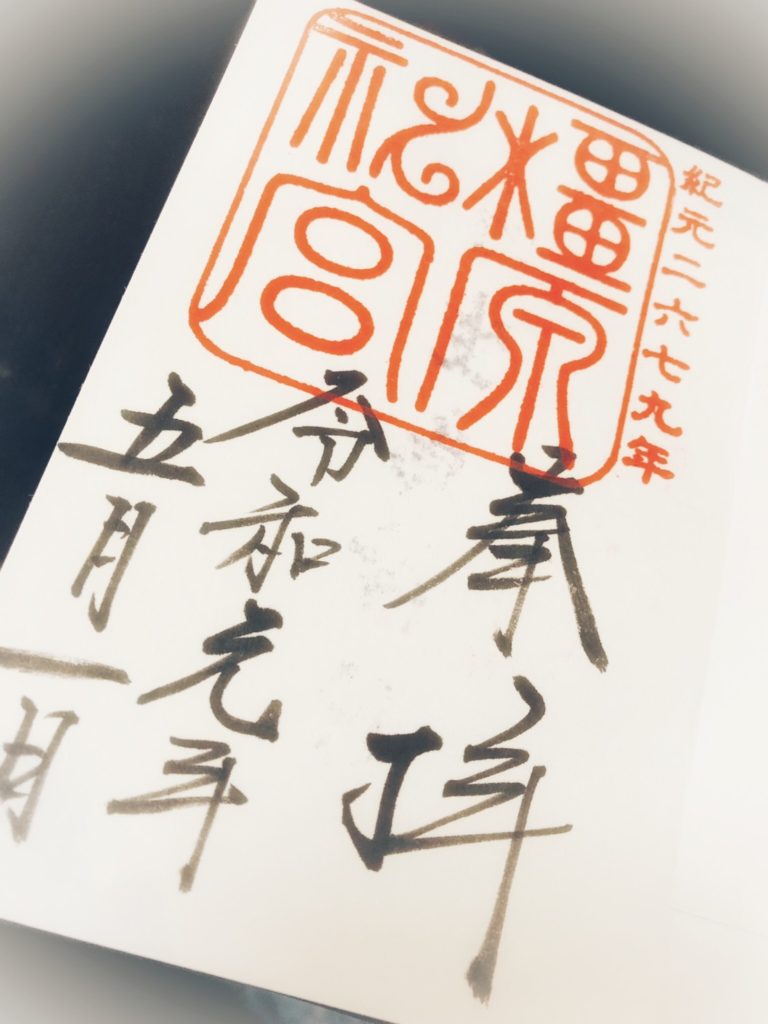 紀元二六七九年
橿原
神宮
奉拝
令和元年
五月一日